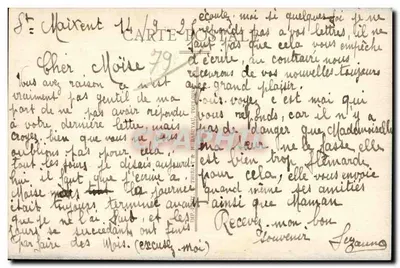 St Maixent 14/9/2
CARTE POSTALE
79
Cher Moïse
Vous avez raison ce n'est
vraiment pas gentil de ma
part de ne pas avoir répondu
à votre dernière lettre mais
croyez bien que nous ne vous
oublions pas pour cela
tout les jours disais aujourd
hui il faut que j'écrive à
Moïse mais la journée
était toujours terminée avant
que je ne l'ai fait, et les
jours se succédant ont fini
par faire des mois. (excusez-moi)
écoutez-moi si quelquefois je ne
réponds pas à vos lettres, il ne
faut pas que cela vous empêche
d'écrire, au contraire nous
recevrons de vos nouvelles toujours
avec grand plaisir.
vous voyez c'est moi qui
vous réponds, car il n'y a
pas de danger que Mademoiselle
ma sœur ne le fasse, elle
est bien trop flémarde
pour cela, elle vous envoie
quand même ses amitiés
ainsi que Maman
Recevez mon bon
Souvenir Suzanne